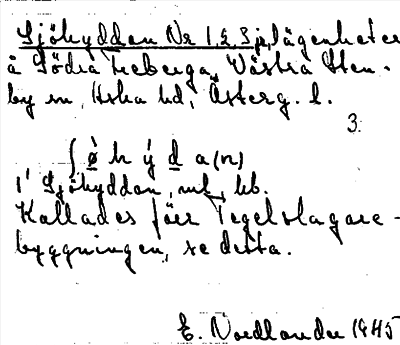 Sjöhyddan Nr 1, 2, 3, lägenheter
å Södra Freberga, Västra Sten-
by sn, Aska hd, Österg. l.
3.
ʃ ǿ h ý d a(n)
1' Sjöhyddan, mtl, kb.
Kallades förr Tegelslagare-
byggningen, se detta.
E. Nordlander 1945